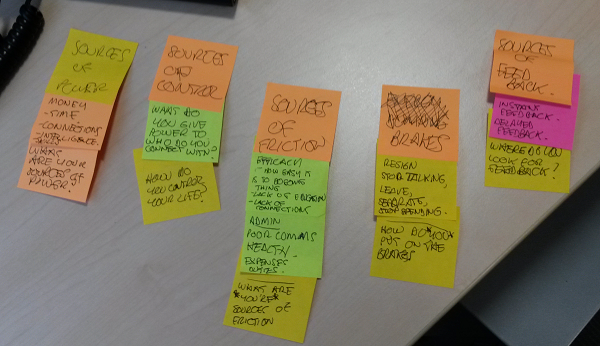 SOURCES
OF
POWER
MONEY
-TIME
-CONNECTIONS
-INTELLIGENCE
THINGS
WHAT
ARE YOUR
SOURCES OF
POWER?
SOURCES
OF
CONTROL
WHAT DO
YOU GIVE
POWER TO
WHO DO YOU
CONNECT WITH?
HOW DO
YOU CONTROL
YOUR LIFE.
SOURCES
OF
FRICTION
EFFICACY
- HOW EASY IT
IS TO
THING
- LACK OF
- LACK OF
CONNECTIONS
ADMIN
POOR COMMS
HEALTH.
EXPENSES
DUTIES.
WHAT ARE
*YOU'RE*
SOURCES OF
FRICTION
BRAKES
RESIGN
STOP TALKING,
LEAVE,
SEPARATE,
STOP SPENDING.
HOW DO *YOU*
PUT ON THE
BRAKES
SOURCES
OF
FEED
BACK.
INSTANT
FEEDBACK.
DELAYED
FEEDBACK.
WHERE DO YOU
LOOK FOR
FEEDBACK?